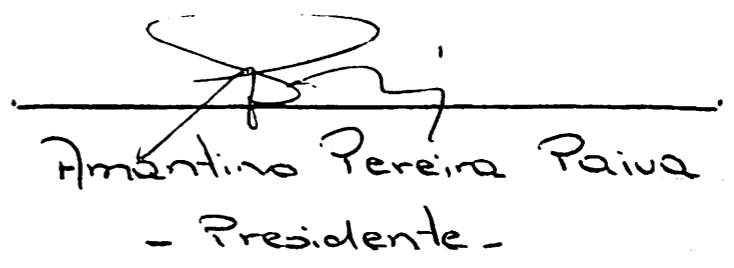 Amantino Pereira Paiva
- Presidente -